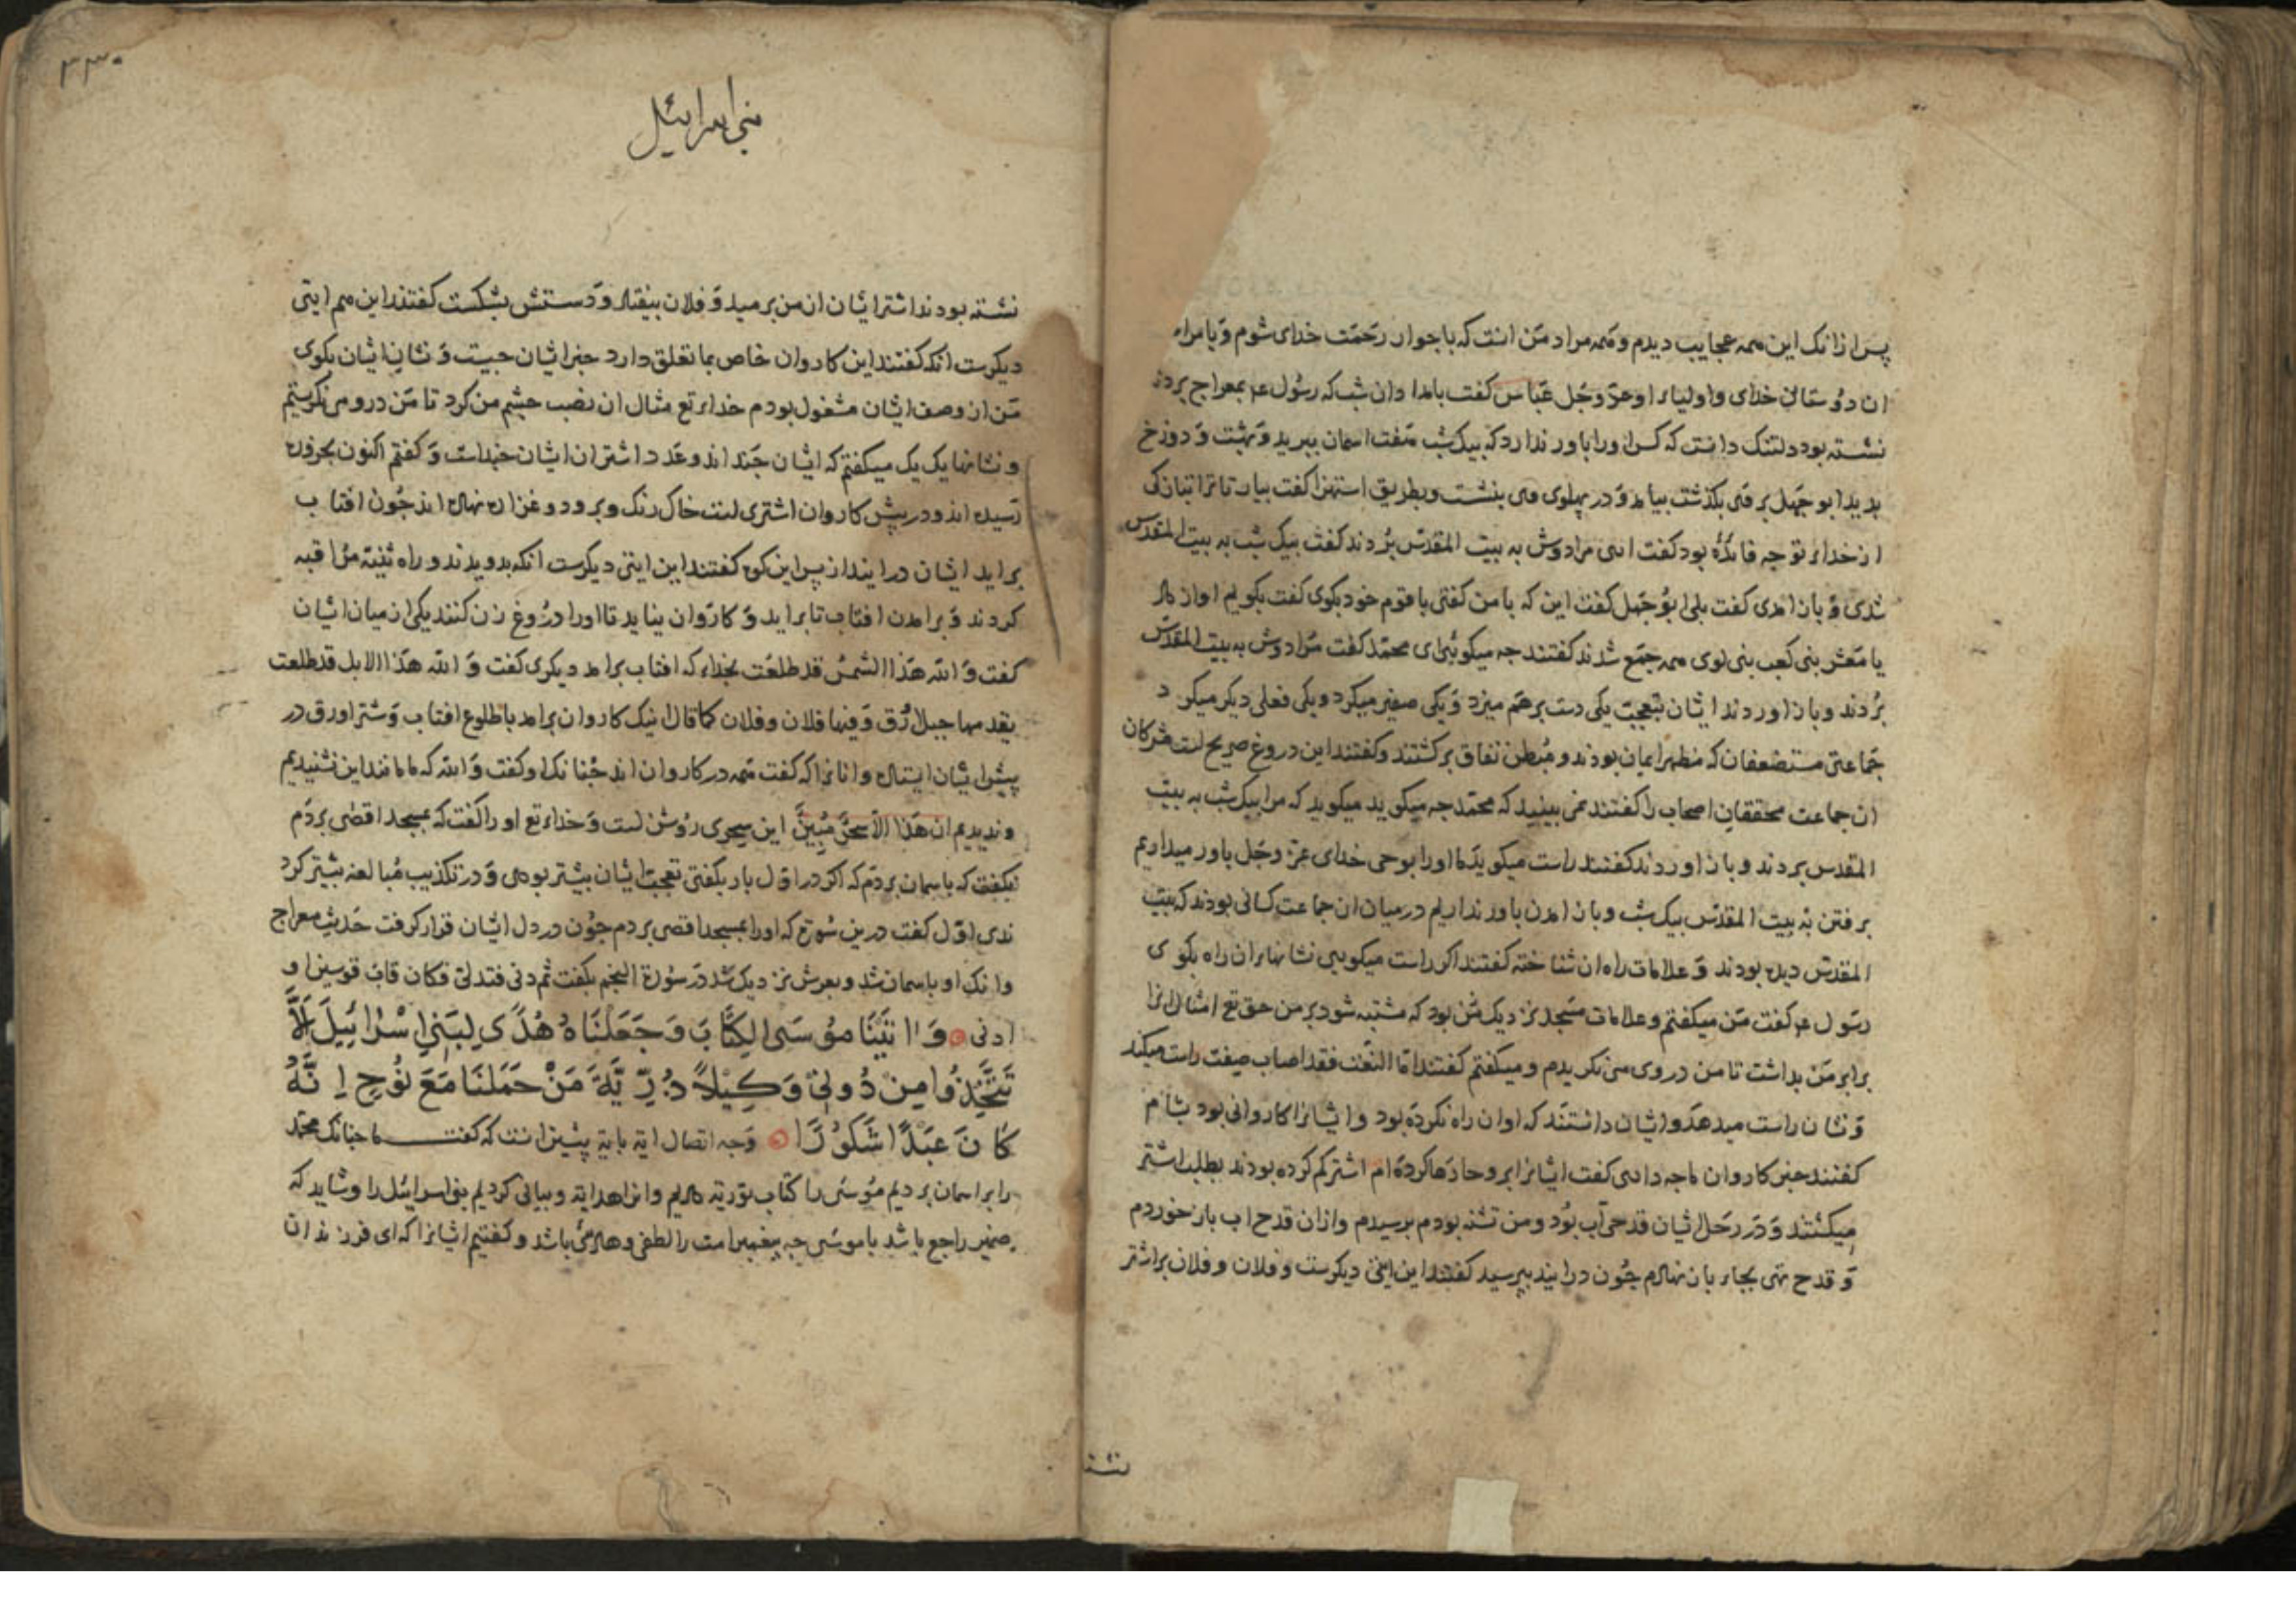 پس ازانک این همه عجایب دیدم و همه مراد من انست که باجوار رحمت خدای شوم و با سراء
ان دوستان خدای و اولیاء او عزّ و جَل عبّاس گفت بامداد ان شب که رسول عم بمعراج بردند
نشسته بود دلتنک دانست که کس اورا باور ندارد که بیک شب هفت اسمان ببرید و بهشت و دوزخ
بدید ابو جهل بر وی بکذشت بیامد و در پهلوی وی بنشست و بطریق استهزا کفت بیار تا ترا تبازکی
از خداء تو جه فائده بود کفت اری مرا دوش به بیت المقدّس بردند کفت بیک شب به بیت المقدس
شدی و بازامدی کفت بلی ابو جهل کفت این که با من کفتی با قوم خود بکوی کفت بکویم اواز داد
یا معشر بنی کعب بنی لوی همه جمع شدند کفتند جه میکوئی ای محمّد کفت مرا دوش به بیت المقدّس
بردند و باز اوردند ایشان بتعجب یکی دست برهم میزد و یکی صفیر میکرد و یکی فعلی دیکر میکرد
جماعتی مستضعفان که مظهر ایمان بودند و مبطن نفاق برکشتند و کفتند این دروغ صریح است مشرکان
ان جماعت محققان اصحاب را کفتند نمی بینید که محمّد جه میکوید میکوید که مرا بیک شب به بیت
المقدس بردند و باز اوردند کفتند راست میکوید ما اورا بوحی خدای عزّ وجَل باور میداریم
برفتن به بیت المقدّس بیک شب و باز امدن باور نداریم درمیان ان جماعت کسانی بودند که بیت
المقدّس دیده بودند و علامات راه ان شناخته کفتند اکر راست میکویی نشانهاء ان راه بکوی
رسول عم کفت من میکفتم و علامات مسجد نزدیک من بود که مشتبه شود بر من حق تع امثال انرا
برابر من بداشت تا من در وی می نکریدم و میکفتم کفتند امّا النعت فقد اصاب صفت راست میکند
و نشان راست میدهد و ایشان دانستند که او ان راه نکرده بود و ایشانرا کاروانی بود بشام
کفتند خبر کاروان ما جه داری کفت ایشانرا بروحا رها کرده ام اشتر کم کرده بودند بطلب اشتر
میکشتند و در رحل ایشان قدحی اب بود و من تشنه بودم برسیدم و ازان قدح اب باز خوردم
و قدح تهی بجاء باز نهادم جون درایند بپرسید کفتند این ایتی دیکرست و فلان و فلان بر اشتر
نشسته
۳۳۰
بنی اسرائیل
نشسته بودند اشتر ایشان از من برمید و فلان بیفتاد و دستش بشکست کفتند این هم ایتی
دیکرست انکه کفتند این کاروان خاص بما تعلق دارد خبر ایشان جیست و نشان ایشان بکوی
من از وصف ایشان مشغول بودم خداء تع مثال ان نصب جشم من کرد تا من درو می نکریستم
و نشانها یک یک میکفتم که ایشان جند اند و عدد اشتران ایشان جنداست و کفتم اکنون بحزوره
رسیده اند و در پیش کاروان اشتری است خاک رنک و برو دو غراره نهاده اند جون افتاب
براید ایشان درایند از پس این کوه کفتند این ایتی دیکرست انکه بدویدند و راه ثنیّه مراقبه
کردند و برامدن افتاب تا براید و کاروان نیاید تا اورا دروغ زن کنند یکی از میان ایشان
کفت و الله هذا الشمس قد طلعت بخداء که افتاب برامد دیکری کفت و الله هذا الابل قد طلعت
یقدمها جمل اورق و فیها فلان و فلان کما قال اینک کاروان برامد با طلوع افتاب و شتر اورق در
پیش ایشان ایستاده و انانرا که کفت همه در کاروان اند جنانک او کفت و الله که ما مانند این نشنیدیم
و ندیدیم ان هذا الا سحر مبین این سحری روشن است و خداء تع اورا کفت که بمسجد اقصی بردم
نکفت که باسمان بردم که اکر در اول بار بکفتی تعجب ایشان بیشتر بودی و در تکذیب مبالغه بیشتر کرد
ندی اول کفت درین سورة که اورا بمسجد اقصی بردم جون در دل ایشان قرار کرفت حدیث معراج
وانک او باسمان شد و بعرش نزدیک شد در سورة النجم بکفت ثم دنی فتدلی فکان قاب قوسین او
ادنی وَاٰتَیْنَا مُوسَی الْکِتَابَ وَجَعَلْنَاهُ هُدًی لِبَنِی اِسْرَائِیلَ اَلَّا
تَتَّخِذُوا مِنْ دُونِی وَکِیلًا ذُرِّیَّةَ مَنْ حَمَلْنَا مَعَ نُوحٍ اِنَّهُ
کَانَ عَبْدًا شَکُورًا وجه اتصال ایة بایة پیشین انست که کفت ما جنانک محمّد
را بر اسمان بردیم موسی را کتاب توریة دادیم وانرا هدایة و بیانی کردیم بنی اسرایئل را و شاید که
ضمیر راجع باشد با موسی جه پیغمبر امت را لطفی و هادئی باشد و کفتیم ایشانرا که ای فرزندان